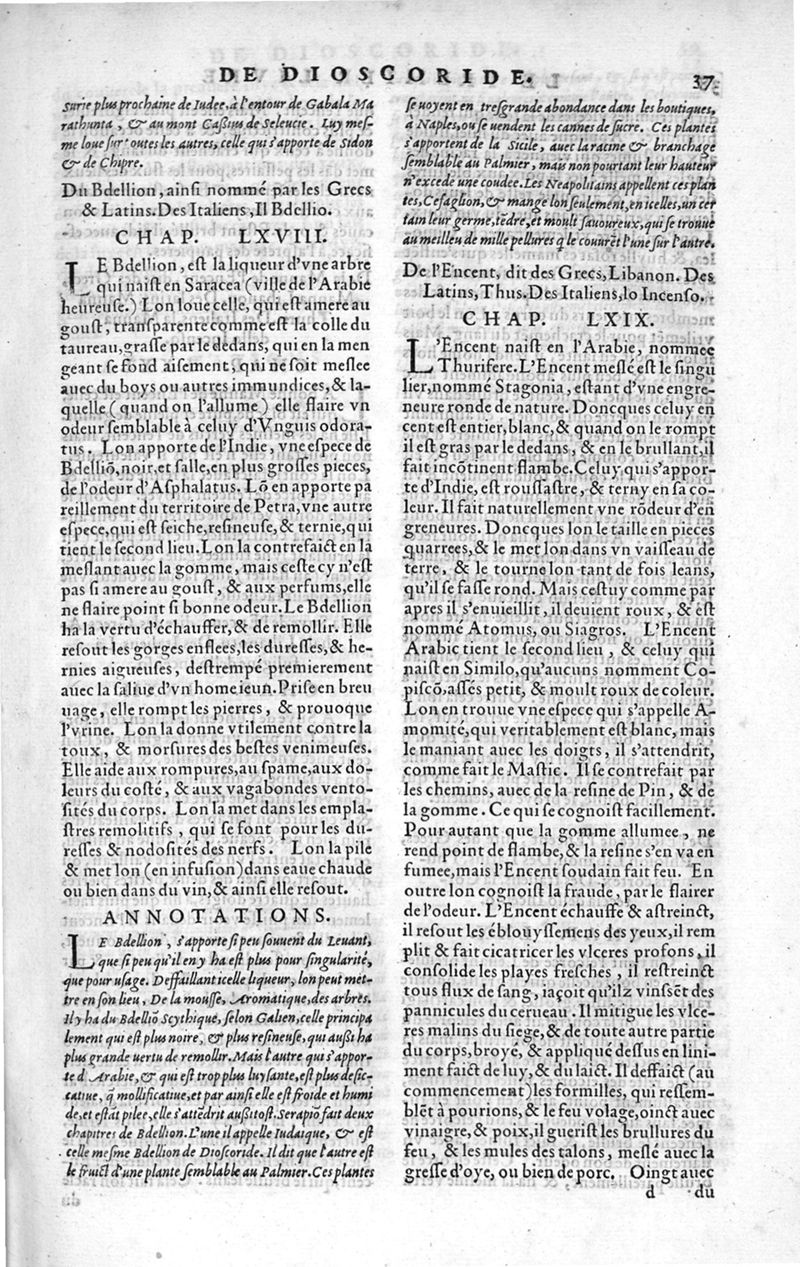 DE DIOSCORIDE.
37
surie plus prochaine de Iudee, à l'entour de Gabala Ma
rathunta, & au mont Caßius de Seleucie. Luy mes-
me loue sur toutes les autres, celle qui s'apporte de Sidon
& de Chipre.
Du Bdellion, ainsi nommé par les Grecs
& Latins. Des Italiens, Il Bdellio.
CHAP. LXVIII.
LE Bdellion, est la liqueur d'vne arbre
qui naist en Saracea (ville de l'Arabie
heureuse.) Lon loue celle, qui est amere au
goust, transparente comme est la colle du
taureau, grasse par le dedans, qui en la men
geant se fond aisement, qui ne soit meslee
auec du boys ou autres immundices, & la-
quelle (quand on l'allume) elle flaire vn
odeur semblable à celuy d'Vnguis odora-
tus. Lon apporte de l'Indie, vne espece de
Bdelliõ, noir, et salle, en plus grosses pieces,
de l'odeur d'Asphalatus. Lõ en apporte pa
reillement du territoire de Petra, vne autre
espece, qui est seiche, resineuse, & ternie, qui
tient le second lieu. Lon la contrefaict en la
meslant auec la gomme, mais ceste cy n'est
pas si amere au goust, & aux perfums, elle
ne flaire point si bonne odeur. Le Bdellion
ha la vertu d'échauffer, & de remollir. Elle
resout les gorges enflees, les duresses, & he-
rnies aigueuses, destrempé premierement
auec la saliue d'vn home ieun. Prise en breu
uage, elle rompt les pierres, & prouoque
l'vrine. Lon la donne vtilement contre la
toux, & morsures des bestes venimeuses.
Elle aide aux rompures, au spame, aux do-
leurs du costé, & aux vagabondes vento-
sités du corps. Lon la met dans les empla-
stres remolitifs, qui se font pour les du-
resses & nodosités des nerfs. Lon la pile
& met lon (en infusion) dans eaue chaude
ou bien dans du vin, & ainsi elle resout.
ANNOTATIONS.
LE Bdellion, s'apporte si peu souuent du Leuant,
que si peu qu'il en y ha est plus pour singularité,
que pour usage. Deffaillant icelle liqueur, lon peut met-
tre en son lieu, De la mousse, Aromatique, des arbres.
Il y ha du Bdelliõ Scythique, selon Galien, celle principa
lement qui est plus noire, & plus resineuse, qui außi ha
plus grande uertu de remollir. Mais l'autre qui s'appor-
te d'Arabie, & qui est trop plus luysante, est plus desic-
catiue, q̃ mollificatiue, et par ainsi elle est froide et humi
de, et estãt pilee, elle s'attẽdrit außitost. Serapiõ fait deux
chapitres de Bdellion. L'une il appelle Iudaique, & est
celle mesme Bdellion de Dioscoride. Il dit que l'autre est
le fruict d'une plante semblable au Palmier. Ces plantes
se uoyent en tresgrande abondance dans les boutiques,
à Naples, ou se uendent les cannes de sucre. Ces plantes
s'apportent de la Sicile, auec la racine & branchage
semblable au Palmier, mais non pourtant leur hauteur
n'excede une coudee. Les Neapolitains appellent ces plan
tes, Cefaglion, & mange lon seulement, en icelles, un cer
tain leur germe, tẽdre, et moult sauoureux, qui se trouue
au meilleu de mille pellures q̃ le couurẽt l'une sur l'autre.
De l'Encent, dit des Grecs, Libanon. Des
Latins, Thus. Des Italiens, lo Incenso.
CHAP. LXIX.
L'Encent naist en l'Arabie, nommee
Thurifere. L'Encent meslé est le singu
lier, nommé Stagonia, estant d'vne engre-
neure ronde de nature. Doncques celuy en
cent est entier, blanc, & quand on le rompt
il est gras par le dedans, & en le brullant, il
fait incõtinent flambe. Celuy qui s'appor-
te d'Indie, est roussastre, & terny en sa co-
leur. Il fait naturellement vne rõdeur d'en
greneures. Doncques lon le taille en pieces
quarrees, & le met lon dans vn vaisseau de
terre, & le tourne lon tant de fois leans,
qu'il se fasse rond. Mais cestuy comme par
apres il s'enuieillit, il deuient roux, & est
nommé Atomus, ou Siagros. L'Encent
Arabic tient le second lieu, & celuy qui
naist en Similo, qu'aucuns nomment Co-
piscõ, assés petit, & moult roux de coleur.
Lon en trouue vne espece qui s'appelle A-
momité, qui veritablement est blanc, mais
le maniant auec les doigts, il s'attendrit,
comme fait le Mastic. Il se contrefait par
les chemins, auec de la resine de Pin, & de
la gomme. Ce qui se cognoist facillement.
Pour autant que la gomme allumee, ne
rend point de flambe, & la resine s'en va en
fumee, mais l'Encent soudain fait feu. En
outre lon cognoist la fraude, par le flairer
de l'odeur. L'Encent échauffe & astreinct,
il resout les éblouyssemens des yeux, il rem
plit & fait cicatricer les vlceres profons, il
consolide les playes fresches, il restreinct
tous flux de sang, iaçoit qu'ilz vinssẽt des
pannicules du cerueau. Il mitigue les vlce-
res malins du siege, & de toute autre partie
du corps, broyé, & appliqué dessus en lini-
ment faict de luy, & du laict. Il deffaict (au
commencement) les formilles, qui ressem-
blẽt à pourions, & le feu volage, oinct auec
vinaigre, & poix, il guerist les brullures du
feu, & les mules des talons, meslé auec la
gresse d'oye, ou bien de porc. Oingt auec
d du